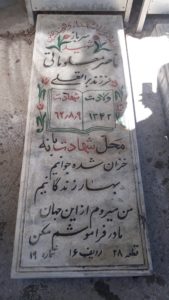 سرباز
شهید
ناصر
فرزند
ولادت شهادت
۱۳۴۲ ۶۲/۸/۹
محل شهادت بانه
خزان شده جوانیم
بهار زندگانیم
من میروم از این جهان
مادر فراموشم مکن
قطعه ۲۸ ردیف ۱۶ شماره ۱۹